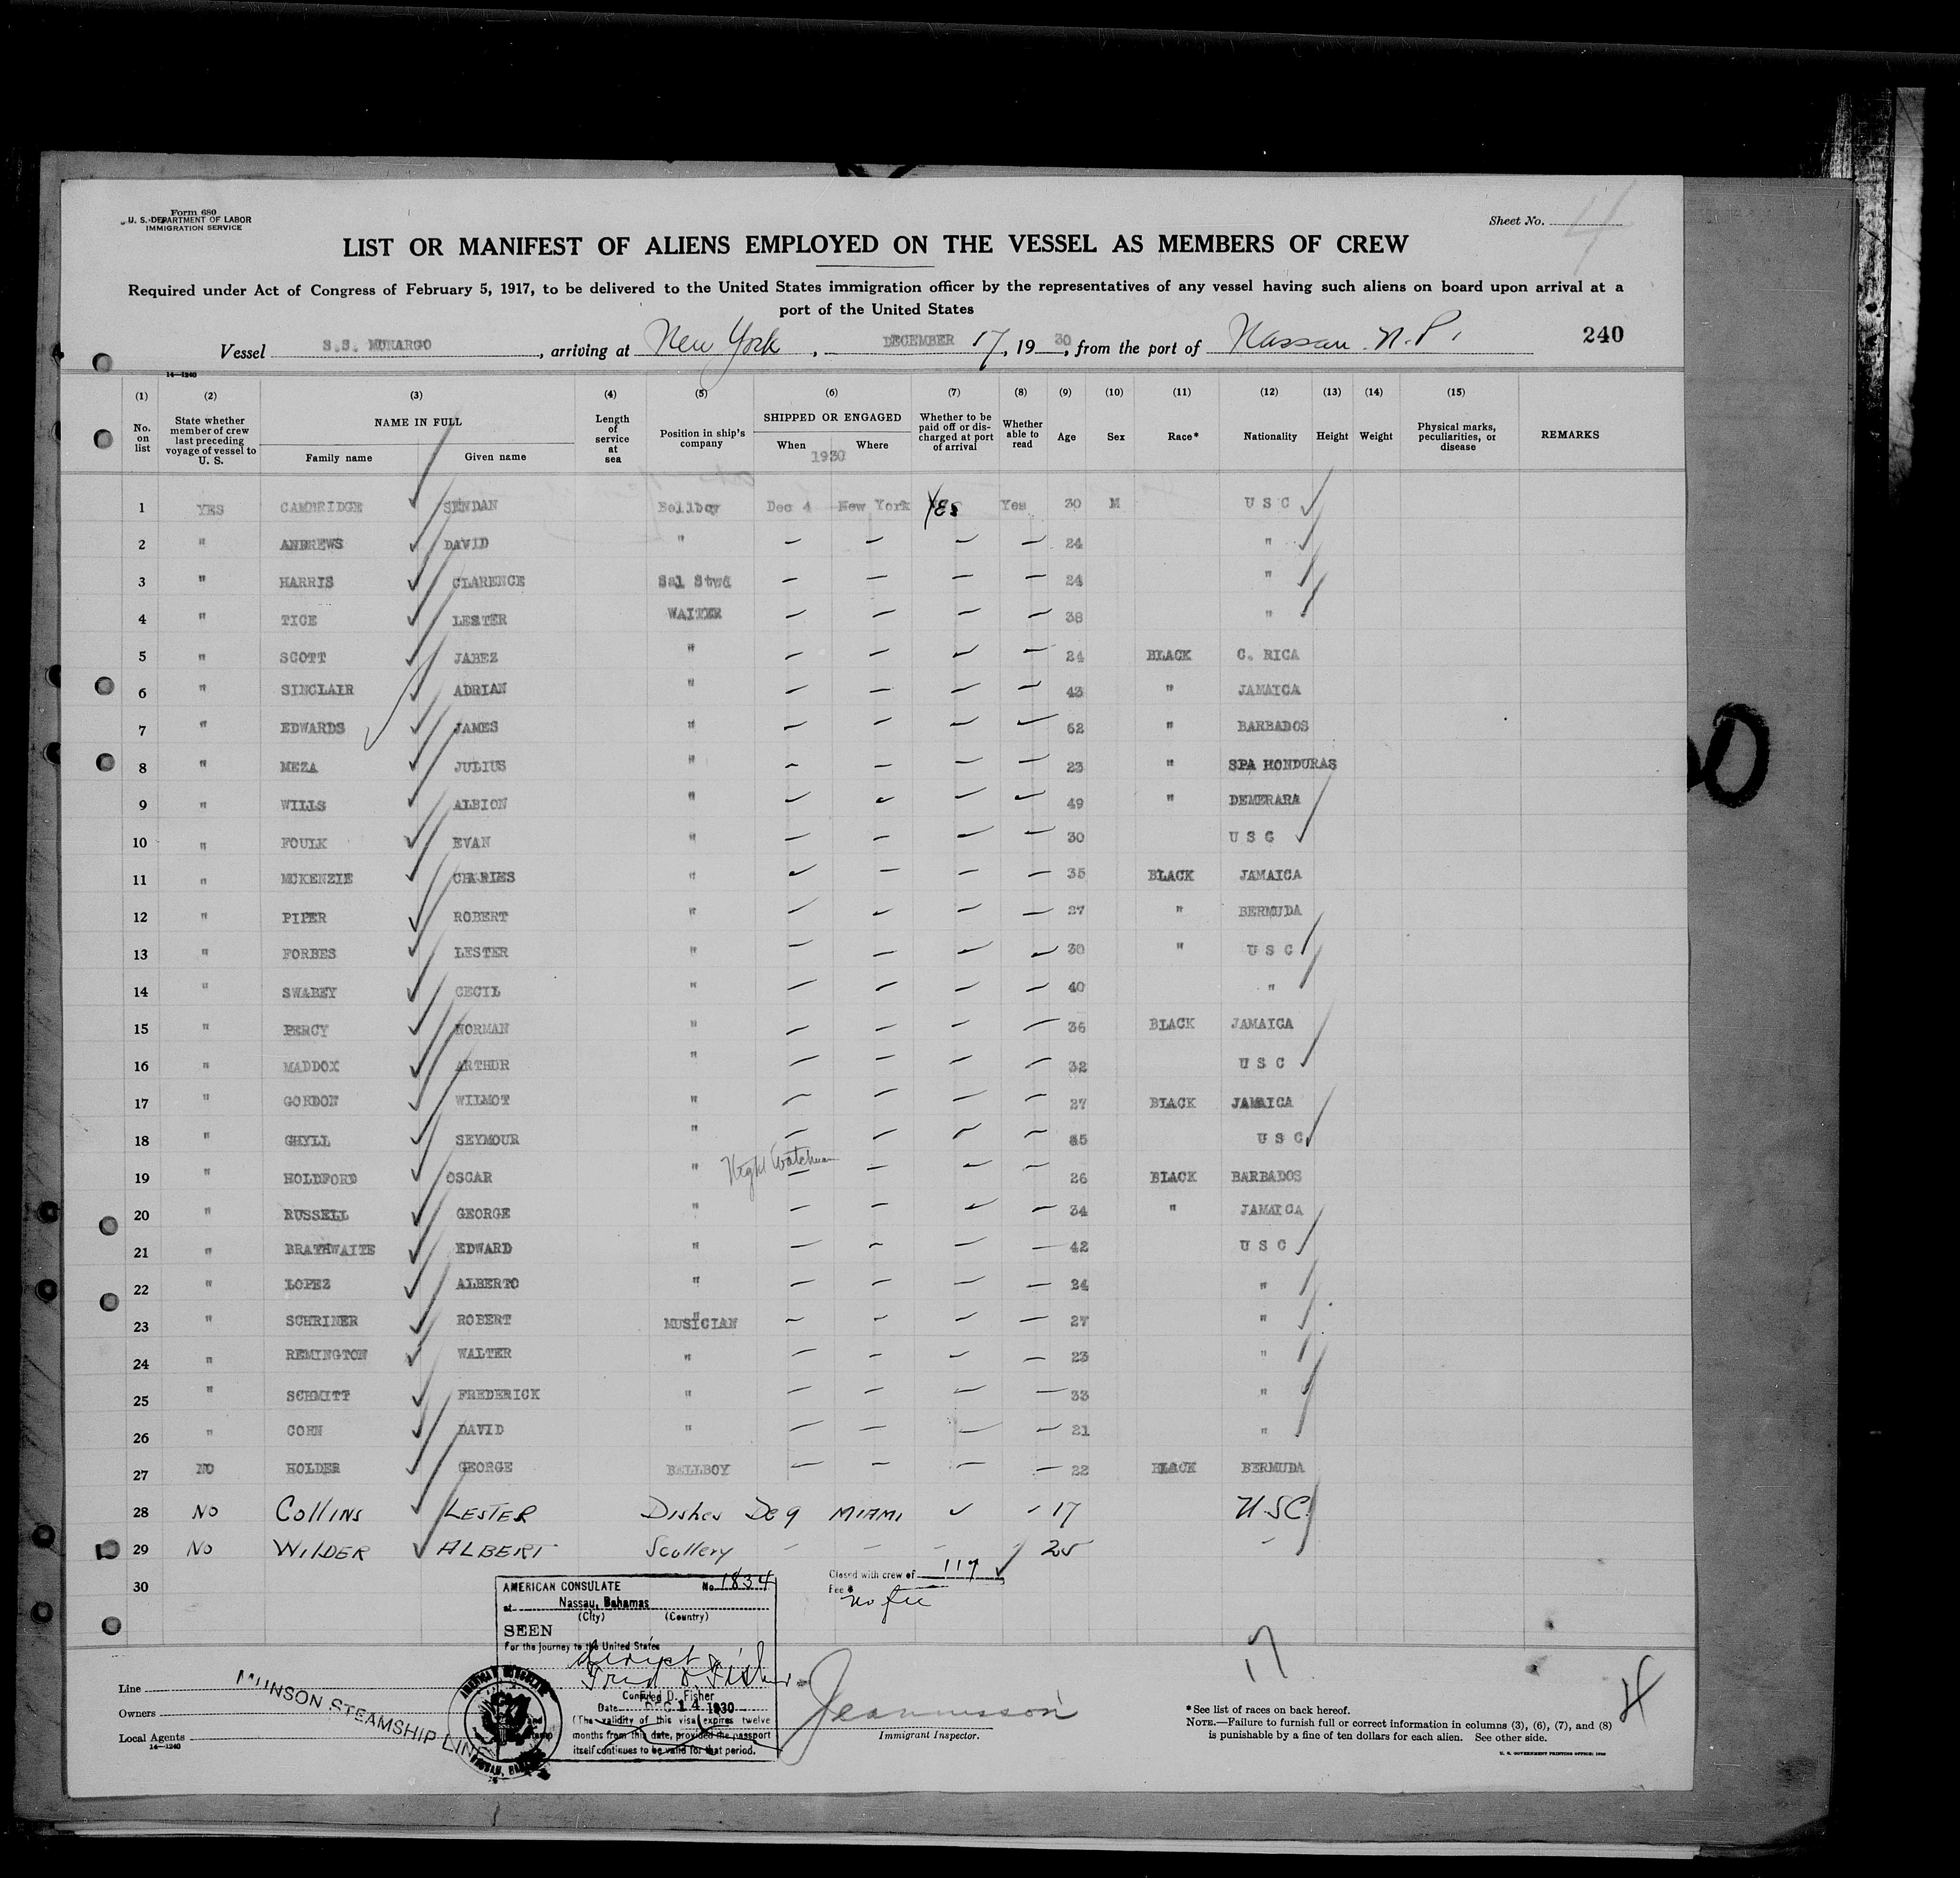 Form 680
U. S. DEPARTMENT OF LABOR
IMMIGRATION SERVICE
Sheet No. 4
LIST OR MANIFEST OF ALIENS EMPLOYED ON THE VESSEL AS MEMBERS OF CREW
Required under Act of Congress of February 5, 1917, to be delivered to the United States immigration officer by the representatives of any vessel having such aliens on board upon arrival at a
port of the United States
Vessel S.S. MUNARGO, arriving at New York, DECEMBER 17, 1930, from the port of Nassau N.P. 240
14—1240
(1) (2) (3) (4) (5) (6) (7) (8) (9) (10) (11) (12) (13) (14) (15)
No. on list | State whether member of crew last preceding voyage of vessel to U. S. | NAME IN FULL Family name Given name | Length of service at sea | Position in ship's company | SHIPPED OR ENGAGED When Where 1930 | Whether to be paid off or discharged at port of arrival | Whether able to read | Age | Sex | Race* | Nationality | Height | Weight | Physical marks, peculiarities, or disease | REMARKS
1 YES CAMBRIDGE SENDAN Bellboy Dec 4 New York YES Yes 30 M U S C
2 " ANDREWS DAVID " — — — — 24 "
3 " HARRIS CLARENCE Sal Stwd — — — — 24 "
4 " TICE LESTER WAITER — — — — 38 "
5 " SCOTT JABEZ " — — — — 24 BLACK C. RICA
6 " SINCLAIR ADRIAN " — — — — 43 " JAMAICA
7 " EDWARDS JAMES " — — — — 62 " BARBADOS
8 " MEZA JULIUS " — — — — 23 " SPA HONDURAS
9 " WILLS ALBION " — — — — 49 " DEMERARA
10 " FOULK EVAN " — — — — 30 U S C
11 " MCKENZIE CHARLES " — — — — 35 BLACK JAMAICA
12 " PIPER ROBERT " — — — — 27 " BERMUDA
13 " FORBES LESTER " — — — — 30 " U S C
14 " SWABEY CECIL " — — — — 40 "
15 " PERCY NORMAN " — — — — 36 BLACK JAMAICA
16 " MADDOX ARTHUR " — — — — 32 U S C
17 " GORDON WILMOT " — — — — 27 BLACK JAMAICA
18 " GHYLL SEYMOUR " — — — — U S C
19 " HOLDFORD OSCAR " Night Watchman — — — — 26 BLACK BARBADOS
20 " RUSSELL GEORGE " — — — — 34 " JAMAICA
21 " BRATHWAITE EDWARD " — — — — 42 U S C
22 " LOPEZ ALBERTO " — — — — 24 "
23 " SCHRINER ROBERT MUSICIAN — — — — 27 "
24 " REMINGTON WALTER " — — — — 23 "
25 " SCHMITT FREDERICK " — — — — 33 "
26 " COHN DAVID " — — — — 21 "
27 NO HOLDER GEORGE BELLBOY — — — — 22 BLACK BERMUDA
28 NO Collins LESTER Dishes De 9 MIAMI 17 U.S.C.
29 NO WILDER ALBERT Scullery — — — 25 "
30
Closed with crew of 117
Fee $ no fee
AMERICAN CONSULATE No. 1834
at Nassau, Bahamas
(City) (Country)
SEEN
For the journey to the United States
direct
Fred D. Fisher
Fred D. Fisher
Date DEC 14 1930
(The validity of this visa expires twelve
months from this date, provided the passport
itself continues to be valid for that period.
Line
Owners
Local Agents
14—1240
MUNSON STEAMSHIP LINE
AMERICAN CONSULATE
NASSAU,
Immigrant Inspector.
17
4
*See list of races on back hereof.
NOTE.—Failure to furnish full or correct information in columns (3), (6), (7), and (8)
is punishable by a fine of ten dollars for each alien. See other side.
U. S. GOVERNMENT PRINTING OFFICE: 1930